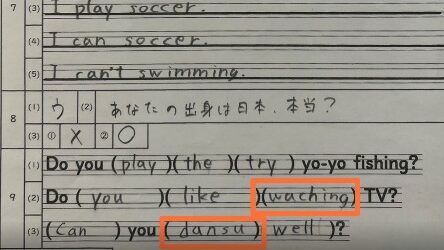 7 (3) I play soccer.
(4) I can soccer.
(5) I can't swimming.
8 (1) ウ (2) あなたの出身は日本、本当？
(3) ① × ② ○
(1) Do you (play)(the)(try) yo-yo fishing?
9 (2) Do (you)(like)(waching) TV?
(3) (Can) you (dansu)(well)?